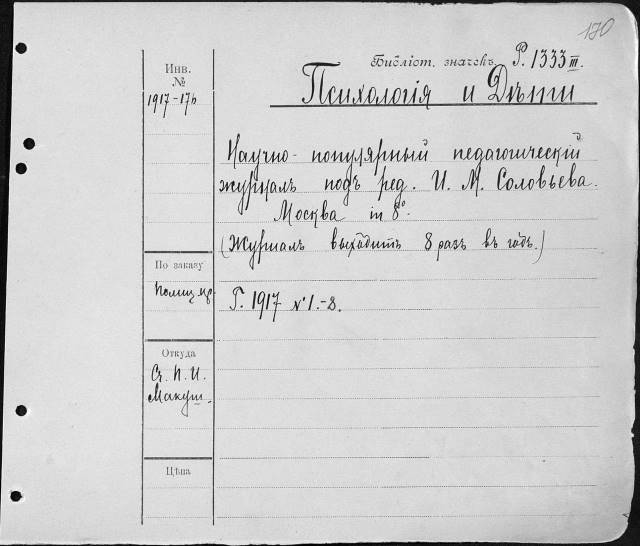 170
Библіот. значекъ Р. 1333 III.
Психологія и Дѣти
Инв.
№
1917-176
Научно-популярный педагогическій
журналъ подъ ред. И. М. Соловьева.
Москва in 8°.
(Журналъ выходитъ 8 разъ въ годъ.)
По заказу
Г. 1917 №1.-8.
Откуда
Сч. П. И.
Макуш.
Цѣна